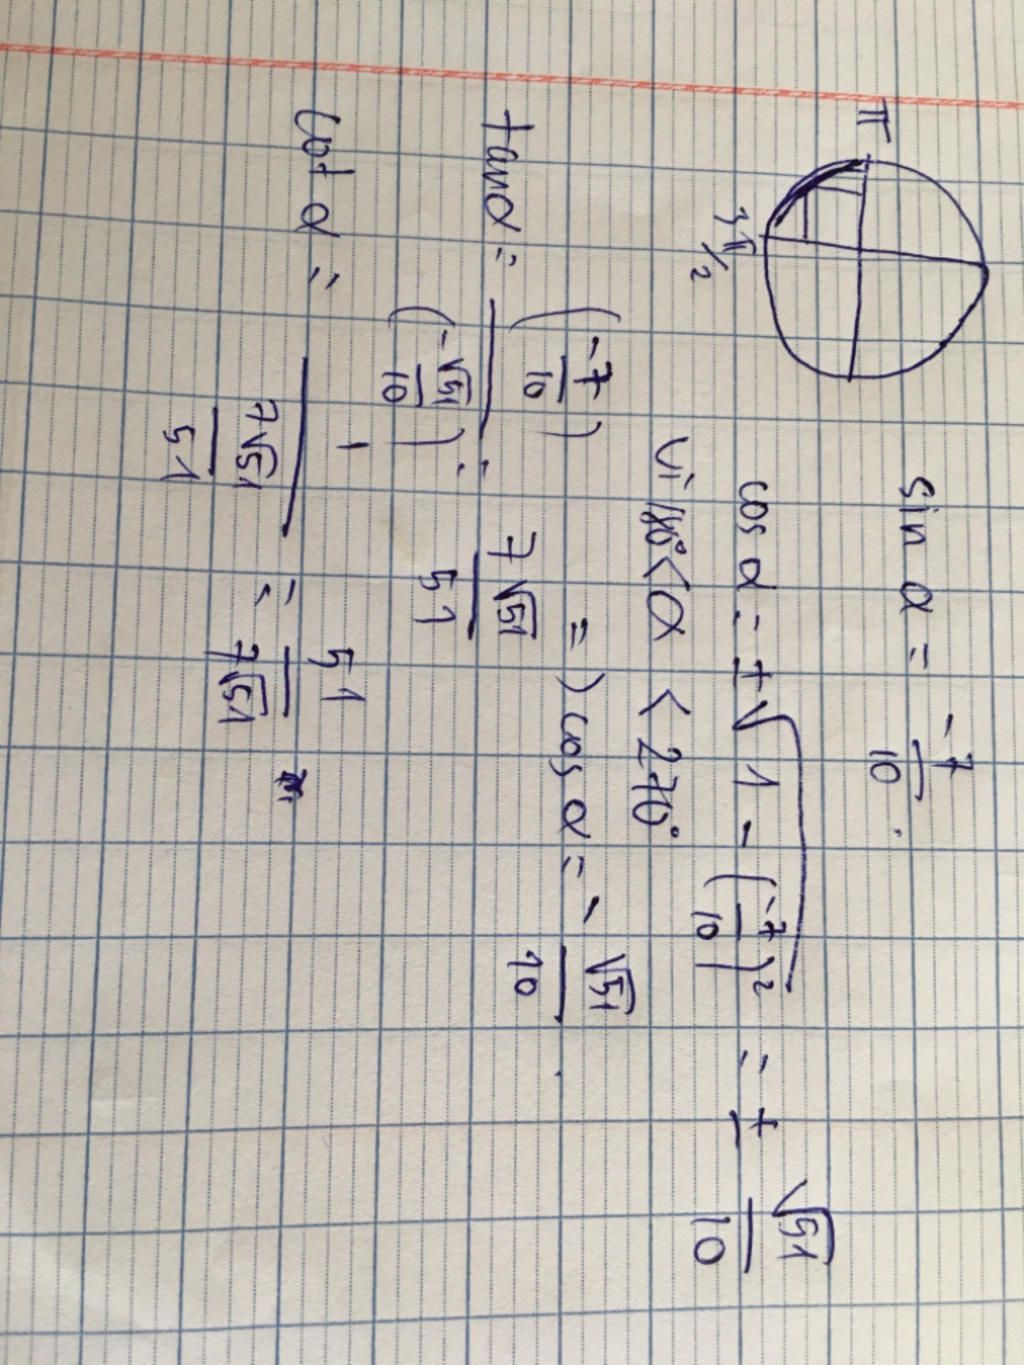 π
3π/2
sin α = -7/10.
cos α = ±√(1 - (-7/10)²) = ± √51/10
Vì 180° < α < 270°
=) cos α = - √51/10.
tan α = (-7/10)/(-√51/10) = 7√51/51
cot α = 1/(7√51/51) = 51/7√51